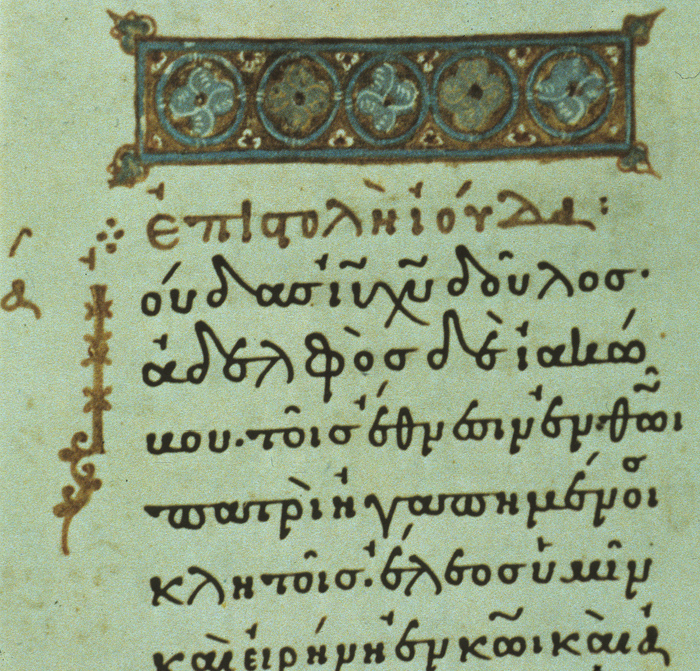 ἐπιστολὴ ἰούδα:
ἰούδας ἶυ χ͂υ δοῦλος·
ἀδελφὸς δὲ ἰακώ
βου· τοῖς ἔθνεσιν ἐν θ͂ωι
πατρὶ ἠγαπημένοις
κλητοῖς· ἔλεος ὑμῖν
καὶ εἰρήνη ἐν κ͂ωι καὶ ἀ